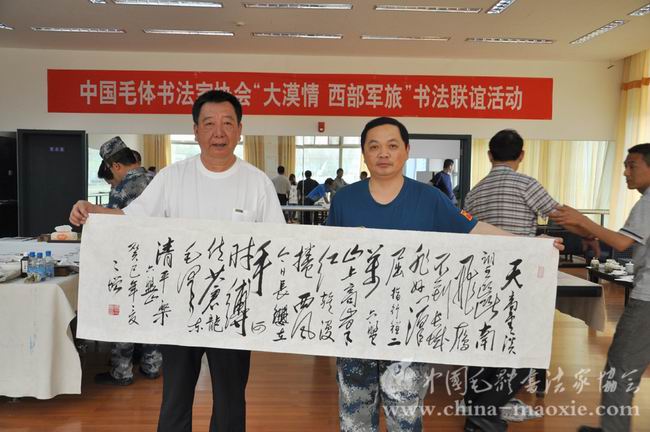 中国毛体书法家协会“大漠情 西部军旅”书法联谊活动
天高雲淡
望斷南
飛雁
不到長城
非好漢
屈指行程二
萬 六盤
山上高峰
紅旗漫
捲西風
今日長纓在
手 何
時縛
住蒼龍
毛澤東
清平樂
六盤山
癸巳年夏
中国毛体书法家协会
www.china-maoxie.com